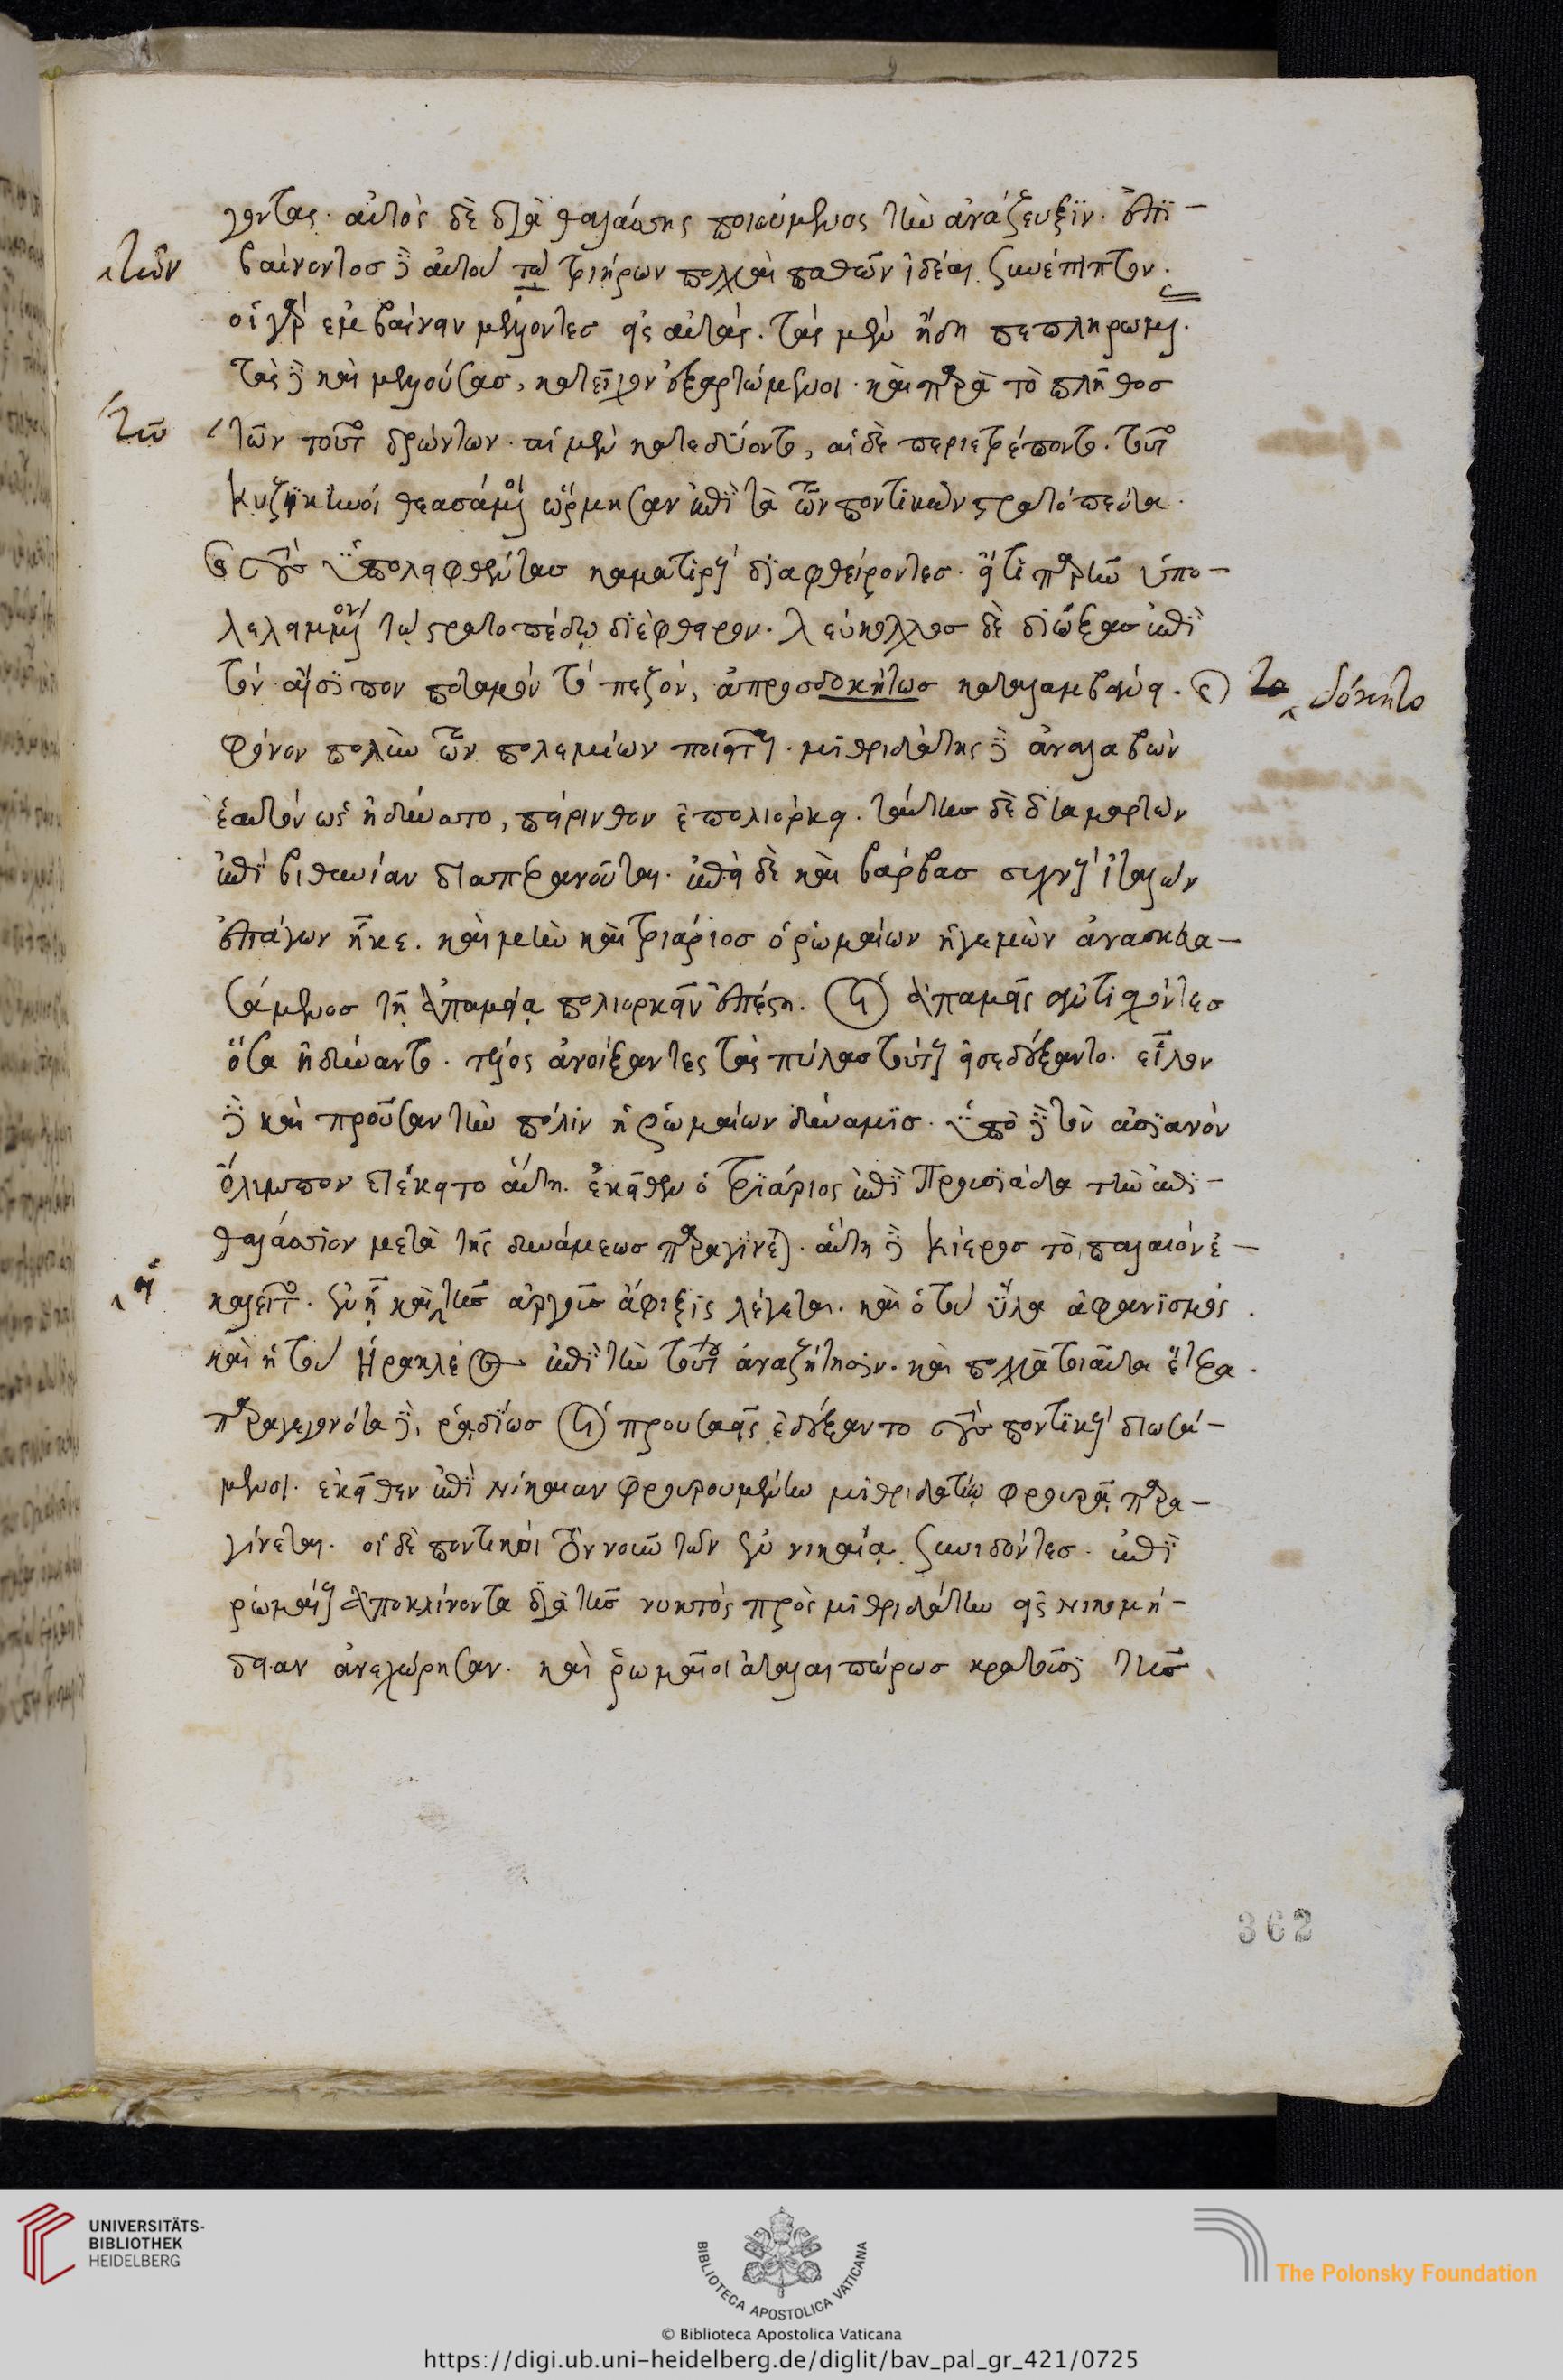 γοντας. αὐτὸς δὲ διὰ θαλάσσης ποιούμενος τὴν ἀνάζευξϊν. ἐπϊ-
τῶν βαίνοντοσ δὲ αὐτοῦ τῶ τριήρων πολλαὶ παθῶν ἰδέαι ξυνέπιπτον.
οἱ γὰρ ἐμβαίνειν μέλλοντεσ εἰς αὐτάς. τὰς μὲν ἤδη πεπληρωμένας.
τὰς δὲ καὶ μελλούσασ, κατεῖχον ἐξαρτώμενοι. καὶ παρὰ τὸ πλῆθοσ
τῶν τοῦτο δρώντων. αἱ μὲν κατεδύοντο, αἱ δὲ περιετρέποντο. τοῦτο
κυζικηνοί θεασάμενοι ὥρμησαν ἐπὶ τὰ τῶν ποντικῶν στρατόπεδα.
καὶ τοὺσ ὑπολειφθέντασ καματηροὺς διαφθείροντεσ. εἴ τι παρῆν ὑπο-
λελειμμένον τῶ στρατοπέδω διέφθειρον. λεύκολλοσ δὲ διώξασ ἐπὶ
τὸν αἴσϊπον ποταμόν τὸ πεζόν, ἀπροσδοκήτωσ καταλαμβάνει. καὶ
δόκητο
φόνον πολὺν τῶν πολεμίων ποιεῖται. μιθριδάτης δὲ ἀναλαβὼν
ἑαυτὸν ὡς ἠδύνατο, πέρινθον ἐπολιόρκει. ταύτησ δὲ διαμαρτών
ἐπὶ βιθυνίαν διαπεραιοῦται. ἐπεὶ δὲ καὶ βάρβασ συχνοὺς ἰταλῶν
ἐπάγων ἧκε. καὶ μὲν καὶ τριάριοσ ὁ ῥωμαίων ἡγεμὼν ἀνασκευα-
σάμενοσ τῆ ἀπαμεία πολιορκεῖν ἐπέστη. οἱ ἀπαμεῖς ἀντισχόντεσ
ὅσα ἠδύναντο. τέλος ἀνοίξαντες τὰς πύλασ τούτους εἰσεδέξαντο. εἷλεν
δὲ καὶ προῦσαν τὴν πόλιν ἡ ῥωμαίων δύναμϊσ. ὑπὸ δὲ τὸν ἀσϊανὸν
ὄλυμπον ἔκειτο αὕτη. ἐκεῖθεν ὁ τριάριος ἐπὶ Προυσιάδα τὴν ἐπι-
θαλάσσιον μετὰ τῆς δυνάμεωσ παραγίνεται. αὕτη δὲ κίεροσ τὸ παλαιὸν ἐ-
ἡ καλεῖτο. ἐν ἧ καὶ τῆσ ἀργοῦσ ἄφιξις λέγεται. καὶ ὁ τοῦ ὕλα ἀφανϊσμός.
καὶ ἡ τοῦ Ἡρακλέους ἐπὶ τὴν τούτου ἀναζήτησιν. καὶ πολλὰ τοιαῦτα ἕτερα.
παραγεγονότα δὲ, ῥαδίωσ οἱ προυσαεῖς ἐδέξαντο τοὺσ ποντικοὺς διωσά-
μενοι. ἐκεῖθεν ἐπὶ νίκαιαν φρουρουμένην μιθριδατείω φρουρᾶ παρα-
γίνεται. οἱ δὲ ποντικοὶ τὸν νοῦν τῶν ἐν νικαία ξυνιδόντεσ. ἐπὶ
ῥωμαίους ἀποκλίνοντα διὰ τῆσ νυκτὸς πρὸς μιθριδάτην εἰς νικομή-
δειαν ἀνεχώρησαν. καὶ ῥωμαῖοι ἀταλαιπώρωσ κρατοῦσϊ τῆσ
362
UNIVERSITÄTS-
BIBLIOTHEK
HEIDELBERG
BIBLIOTECA APOSTOLICA VATICANA
The Polonsky Foundation
© Biblioteca Apostolica Vaticana
https://digi.ub.uni-heidelberg.de/diglit/bav_pal_gr_421/0725